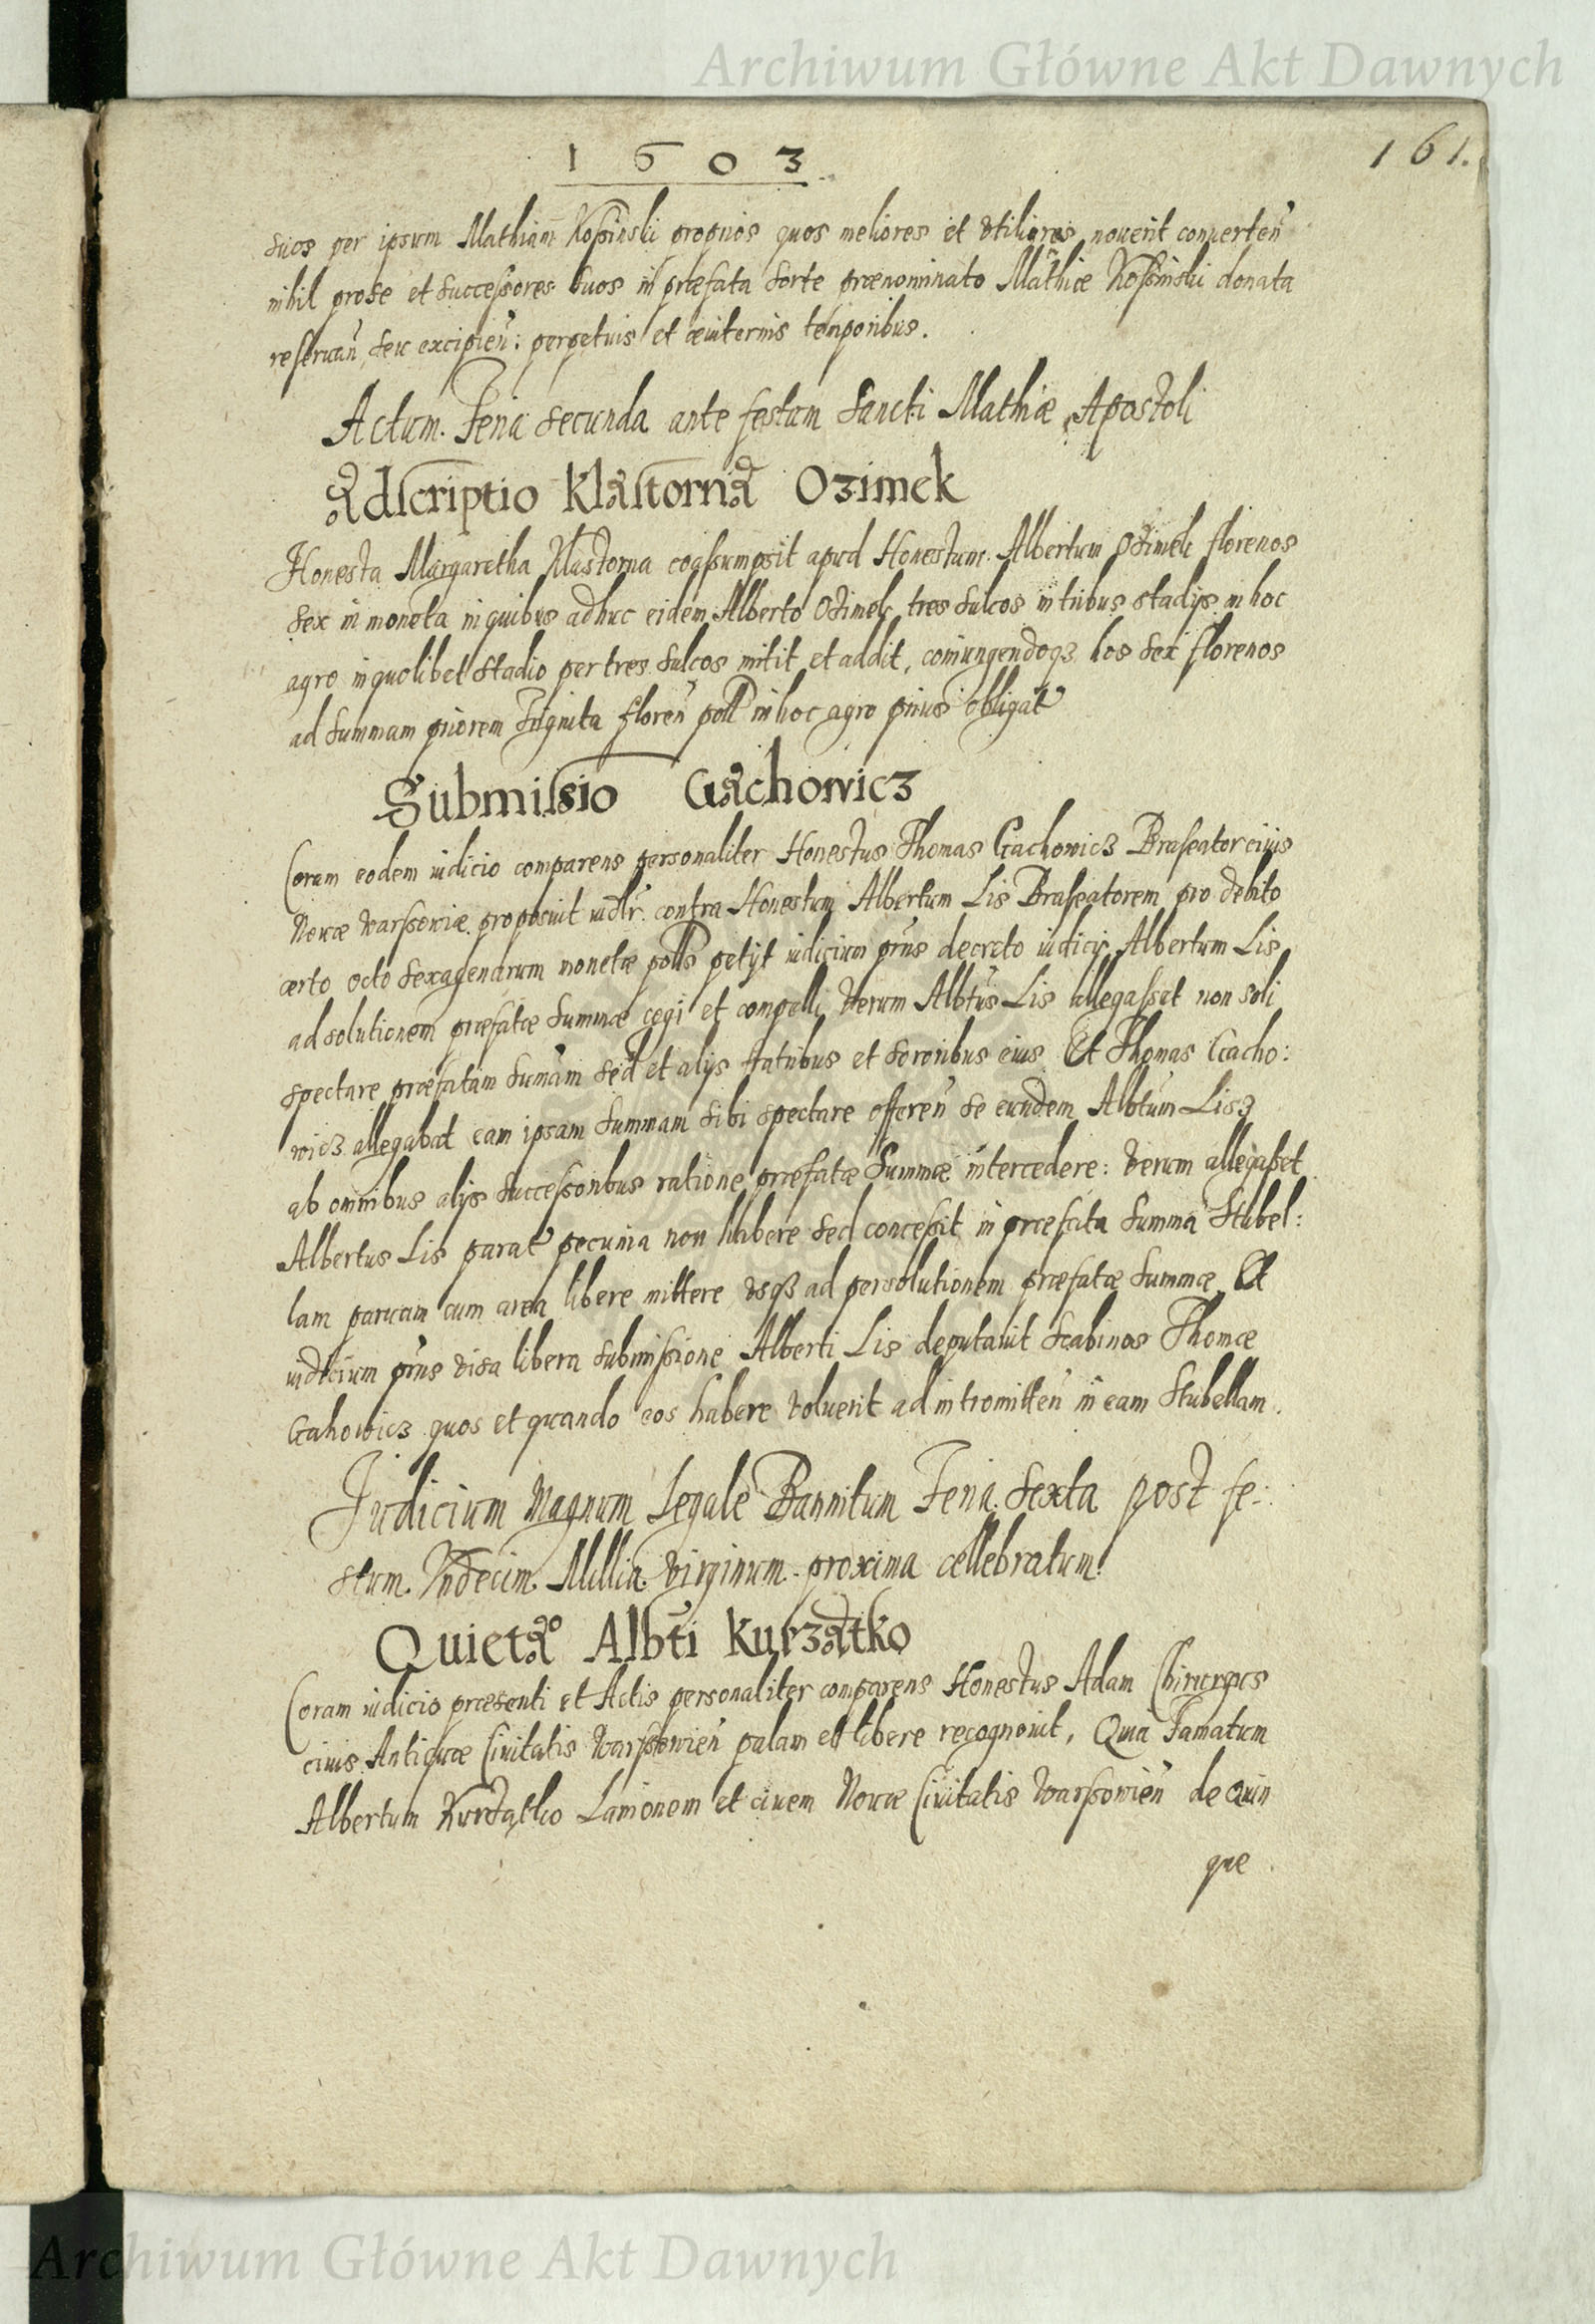 Archiwum Główne Akt Dawnych
1603
161.
suos per ipsum Mathiam Kossinski proprios quos meliores et utiliores noverit converten̄
nihil pro se et successores suos in præfata sorte prænominato Mathiæ Kossinski donata
reservan̄ seu excipien̄: perpetuis et æviternis temporibus.
Actum. Feria secunda ante festum Sancti Mathiæ Apostoli
Adscriptio Klastorna Ozimek
Honesta Margaretha Klastorna coassumpsit apud Honestum Albertum Ozimek florenos
sex in moneta in quibus adhuc eidem Alberto Ozimek tres sulcos in tribus stadijs in hoc
agro in quolibet stadio per tres sulcos mittit et addit, coniungendoqz hos sex florenos
ad summam priorem Triginta floren̄ poll in hoc agro prius obligat
Submissio Gachowicz
Coram eodem iudicio comparens personaliter Honestus Thomas Gachowicz Braseator civis
Novæ Warssoviæ proposuit contra Honestum Albertum Lis Braseatorem pro debito
certo octo sexagenarum monetæ polls petijt iudicium prns decreto iudicij Albertum Lis
ad solutionem præfatæ summæ cogi et compelli Verum Albtus Lis allegasset non soli
spectare præfatam sumam sed et alijs fratribus et sororibus eius Et Thomas Gacho:
wicz allegabat eam ipsam summam sibi spectare offeren̄ se eundem Albtum Lisz
ab omnibus alijs successoribus ratione præfatæ Summæ intercedere: Verum allegasset
Albertus Lis parat pecunia non hibere sed concessit in præfata summa Stubel:
lam parvam cum area libere mittere usqz ad persolutionem præfatæ summæ Et
iudicium prns visa libera submissione Alberti Lis deputavit Scabinos Thomæ
Gahowicz quos et quando eos habere voluerit ad intromitten̄ in eam Stubellam.
Iudicium Magnum Legale Bannitum Feria Sexta post fe:
stum Undecim Millia Virginum proxima cellebratum
Quietao Albti Kurzatko
Coram iudicio præsenti et Actis personaliter comparens Honestus Adam Chirurgus
civis Antiquæ Civitatis Warssovien̄ palam et libere recognovit, Quia Famatum
Albertum Kurzątko Lanionem et civem Novæ Civitatis Warssovien̄ de quin
que
Archiwum Główne Akt Dawnych